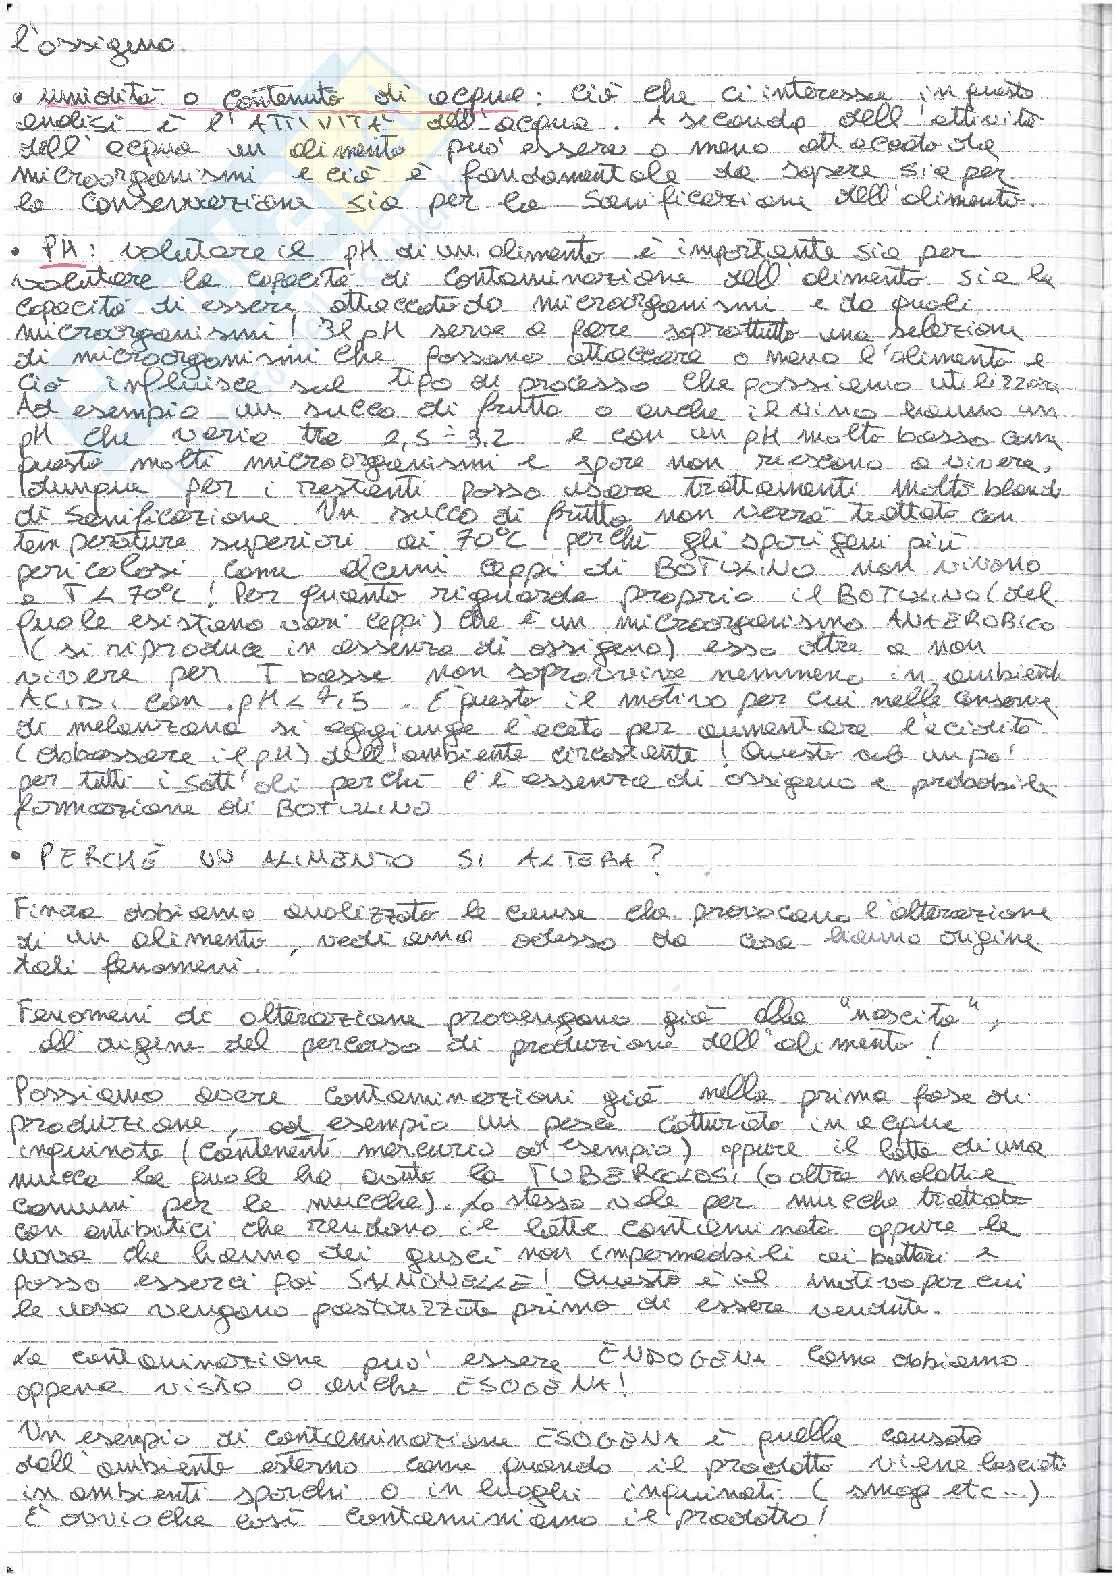 l'ossigeno.
• umidità o contenuto di acqua: ciò che ci interessa in questa
analisi è l'ATTIVITÀ dell'acqua. A seconda dell'attività
dell'acqua un alimento può essere o meno attaccato da
microorganismi e ciò è fondamentale da sapere sia per
la conservazione sia per la sanificazione dell'alimento.
• PH: valutare il pH di un alimento è importante sia per
valutare la capacità di contaminazione dell'alimento sia la
capacità di essere attaccato da microorganismi e da quali
microorganismi! Il pH serve a fare soprattutto una selezione
di microorganismi che possano attaccare o meno l'alimento e
ciò influisce sul tipo di processo che possiamo utilizzare
Ad esempio un succo di frutta o anche il vino hanno un
pH che varia tra 2,5 ÷ 3.2 e con un pH molto basso come
questo molti microorganismi e spore non riescono a vivere,
dunque per i restanti posso usare trattamenti molto blandi
di sanificazione. Un succo di frutta non verrà trattato con
temperature superiori ai 70°C perchè gli sporigeni più
pericolosi come alcuni ceppi di BOTULINO non vivono
a T < 70°C! Per quanto riguarda proprio il BOTULINO (del
quale esistono vari ceppi) che è un microorganismo ANAEROBICO
(si riproduce in assenza di ossigeno) esso oltre a non
vivere per T basse non sopravvive nemmeno in ambienti
ACIDI con pH < 4,5. È questo il motivo per cui nelle conserve
di melanzana si aggiunge l'aceto per aumentare l'acidità
(abbassare il pH) dell'ambiente circostante! Questo un po'
per tutti i sott'oli perchè c'è assenza di ossigeno e probabile
formazione di BOTULINO
• PERCHÈ UN ALIMENTO SI ALTERA?
Finora abbiamo analizzato le cause che provocano l'alterazione
di un alimento, vediamo adesso da cosa hanno origine
tali fenomeni.
Fenomeni di alterazione provengono già dalla "nascita",
all'origine del percorso di produzione dell'alimento!
Possiamo avere contaminazioni già nella prima fase di
produzione, ad esempio un pesce catturato in acque
inquinate (contenenti mercurio ad esempio) oppure il latte di una
mucca la quale ha avuto la TUBERCOLOSI (o altre malattie
comuni per le mucche). Lo stesso vale per mucche trattate
con antibitici che rendono il latte contaminato oppure le
uova che hanno dei gusci non impermeabili ai batteri e
posso esserci poi SALMONELLE! Questo è il motivo per cui
le uova vengono pastorizzate prima di essere vendute.
La contaminazione può essere ENDOGENA come abbiamo
appena visto o anche ESOGENA!
Un esempio di contaminazione ESOGENA è quella causata
dall'ambiente esterno come quando il prodotto viene lasciato
in ambienti sporchi o in luoghi inquinati (smog etc...)
È ovvio che così contaminiamo il prodotto!